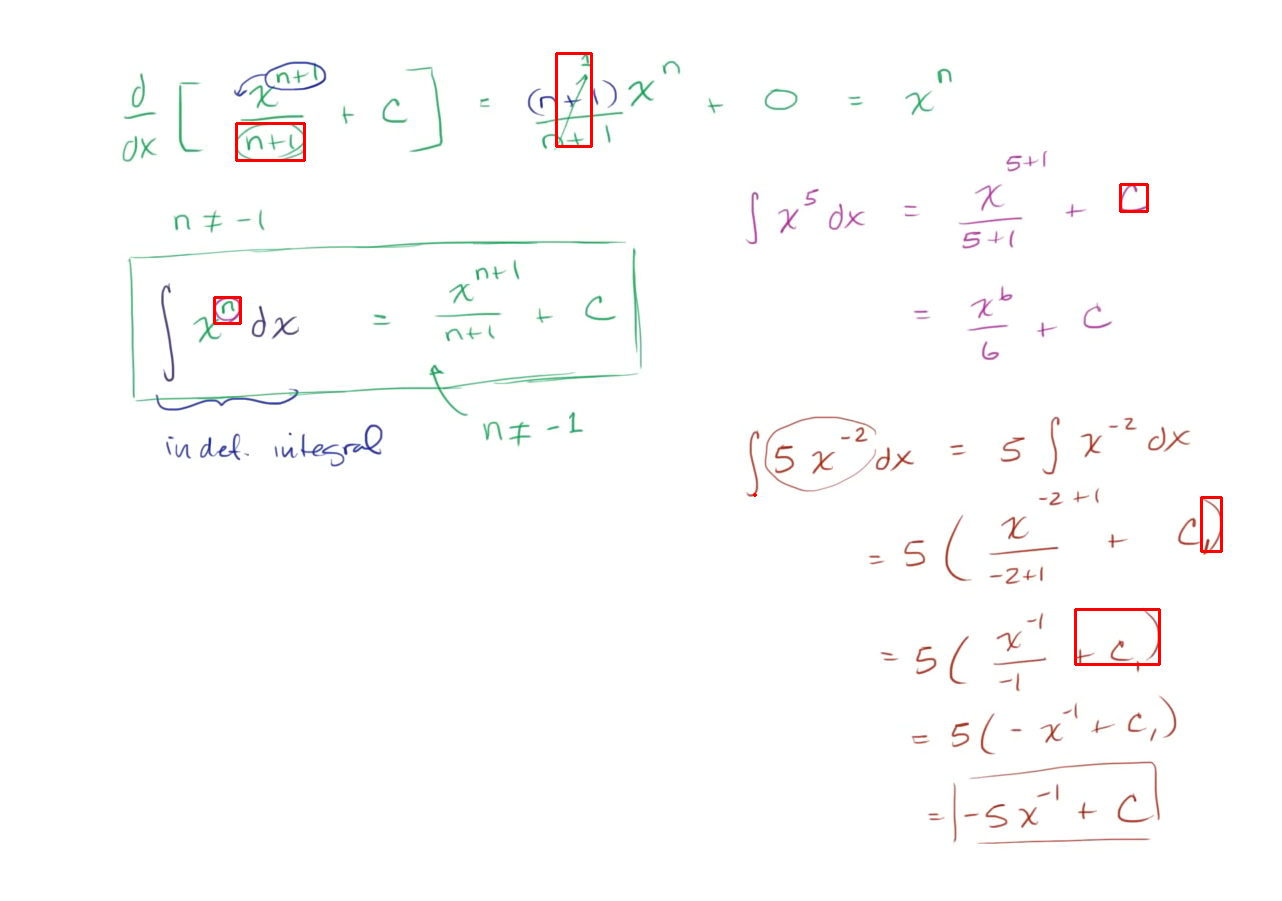 d/dx [ x^(n+1)/(n+1) + C ] = (n+1)/(n+1) 1 x^n + 0 = x^n
n ≠ -1
∫ x^n dx = x^(n+1)/(n+1) + C
n ≠ -1
indef. integral
∫ x^5 dx = x^(5+1)/(5+1) + C
= x^6/6 + C
∫ 5 x^(-2) dx = 5 ∫ x^(-2) dx
= 5 ( x^(-2+1)/(-2+1) + C₁ )
= 5 ( x^(-1)/(-1) + C₁ )
= 5 ( - x^(-1) + C₁ )
= -5x^(-1) + C